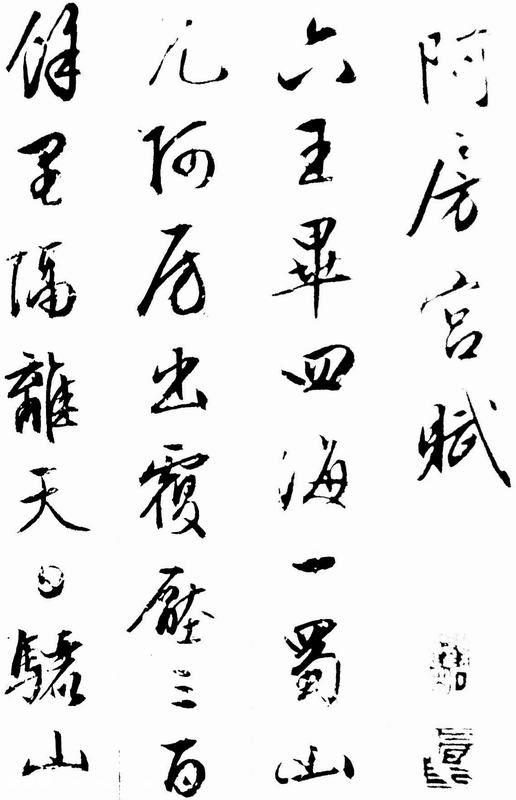 阿房宮賦
六王畢四海一蜀山
兀阿房出覆壓三百
餘里隔離天日驪山